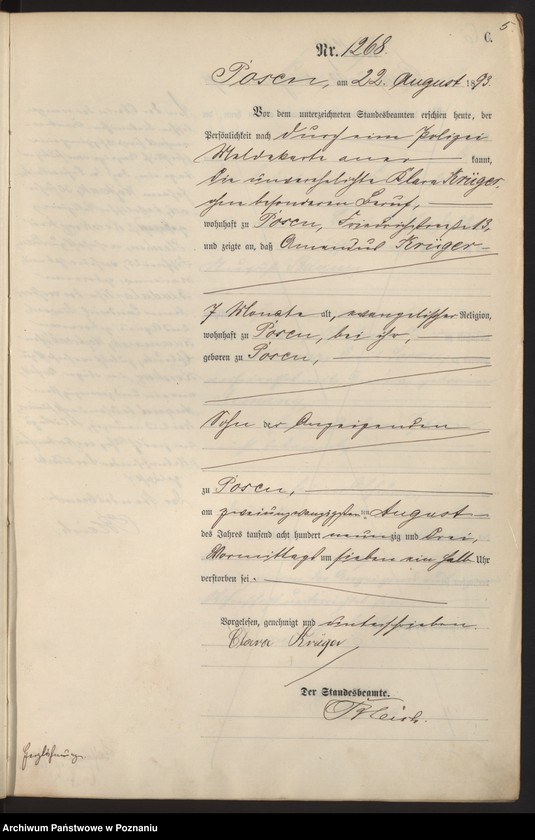 5.
C.
Nr. 1268
Posen, am 22. August 1893.
Vor dem unterzeichneten Standesbeamten erschien heute, der
Persönlichkeit nach durch eine Polizei
Meldekarte aner kannt,
die unverehelichte Klara Krüger,
ohne besonderen Beruf,
wohnhaft zu Posen, Friedrichstraße 13,
und zeigte an, daß Amandus Krüger
7 Monate alt, evangelischer Religion,
wohnhaft zu Posen, bei ihr,
geboren zu Posen,
Sohn der Anzeigenden
zu Posen,
am zweiundzwanzigsten ten August
des Jahres tausend acht hundert neunzig und drei,
Vormittags um sieben ein halb Uhr
verstorben sei.
Vorgelesen, genehmigt und unterschrieben.
Clara Krüger
Der Standesbeamte.
Archiwum Państwowe w Poznaniu